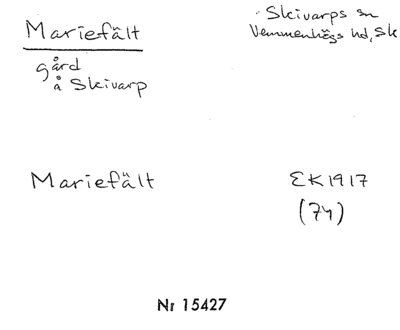 Mariefält
Skivarps sn
Vemmenhögs hd, Sk
gård
å Skivarp
Mariefält
EK 1917
(74)
Nr 15427